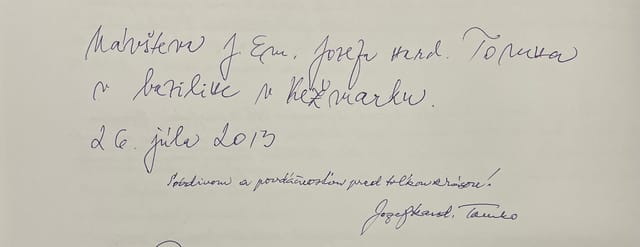 Návšteva J. Em. Jozefa kard. Tomka
v bazilike v Kežmarku.
26. júla 2013
S obdivom a povďačnosťou pred toľkou krásou!
Jozef kard. Tomko